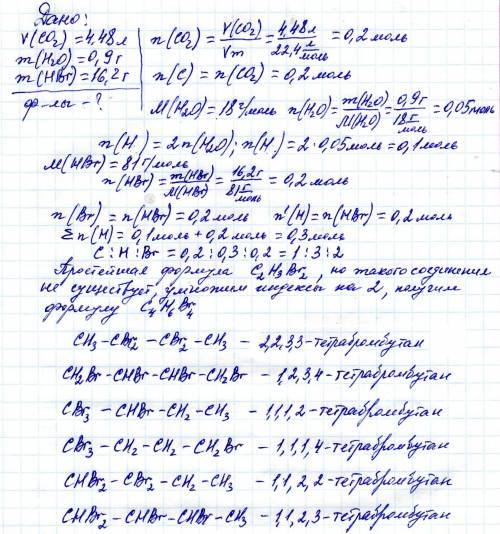 Дано:
V(CO₂)=4,48л
m(H₂O)=0,9г
m(HBr)=16,2г
ф-лы-?
n(CO₂)=V(CO₂)/Vm=4,48л/22,4 л/моль=0,2моль
n(C)=n(CO₂)=0,2моль
M(H₂O)=18г/моль n(H₂O)=m(H₂O)/M(H₂O)=0,9г/18 г/моль=0,05моль
n(H.)=2n(H₂O); n(H.)=2·0,05моль=0,1моль
M(HBr)=81г/моль
n(HBr)=m(HBr)/M(HBr)=16,2г/81 г/моль=0,2моль
n(Br)=n(HBr)=0,2моль n'(H)=n(HBr)=0,2моль
Σn(H)=0,1моль+0,2моль=0,3моль
C:H:Br=0,2:0,3:0,2=1:3:2
Простейшая формула C₂H₃Br₂, но такого соединения
не существует, умножим индексы на 2, получим
формулу C₄H₆Br₄
CH₃-CBr₂-CBr₂-CH₃ - 2,2,3,3-тетрабромбутан
CH₂Br-CHBr-CHBr-CH₂Br - 1,2,3,4-тетрабромбутан
CBr₃-CHBr-CH₂-CH₃ - 1,1,1,2-тетрабромбутан
CBr₃-CH₂-CH₂-CH₂Br - 1,1,1,4-тетрабромбутан
CHBr₂-CBr₂-CH₂-CH₃ - 1,1,2,2-тетрабромбутан
CHBr₂-CHBr-CHBr-CH₃ - 1,1,2,3-тетрабромбутан